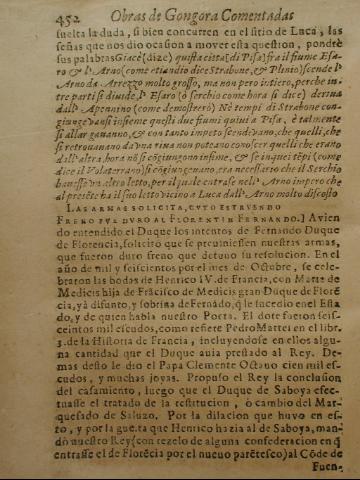 452 Obras de Gongora Comentadas
suelta la duda, si bien concurren en el sitio de Luca, las
señas que nos dio ocasion a mover esta question, pondrè
sus palabras Giace (dize) questa città (di Pisa) fra il fiume Esaro
& l' Arno (come etiandio dice Strabone, & Plinio) scende l'
Arno da Arezzo molto grosso, ma non pero intiero, perche in
tre parti si diuide, l' Esaro (o serchio come hora si dice) deriua
dall' Apennino (come demosterò) Ne tempi di Strabone con
giungeuansi insieme questi due fiumi quiui a Pisa, è talmente
si allargauanno, & con tanto impeto scendeuano, che quelli, che
si retrouanano da vna riua non poteano conoscer quelli che erano
dall' altra, hora nõ si cõgiungono insieme, & se in quei tẽpi (come
dice il Volaterrano) si cõgiungeano, era necessario che il Serchio
hauesse vn altro letto, per il quale entrasse nell' Arno impero che
al presẽte ha il suo letto vicino a Luca dall' Arno molto discosto
LAS ARMAS SOLICITA, CVYO ESTRVENDO
FRENO FVE DVRO AL FLORENTIN FERNANDO.] Aviendo
entendido el Duque los intentos de Fernando Duque
de Florencia, solicitò que se preuiniessen nuestras armas,
que fueron duro freno que detuuo su resolucion. En el
año de mil y seiscientos por el mes de Octubre, se cele-
braron las bodas de Henrico IV. de Francia, con Maria de
Medicis hija de Frãcisco de Medicis gran Duque de Florẽ
cia, yà difunto, y sobrina de Fernãdo, q̃ le sucedio en el Esta
do, y de quien habla nuestro Poeta. El dote fueron seis-
ceintos mil escudos, como refiere Pedro Mattei en el libr.
3. de la Historia de Francia, incluyendose en ellos algu-
na cantidad que el Duque auia prestado al Rey. De-
mas desto le dio el Papa Clemente Octauo cien mil es-
cudos, y muchas joyas. Propuso el Rey la conclusion
del casamiento, luego que el Duque de Saboya efec-
tuasse el tratado de la restitucion, ò cambio del Mar-
quesado de Saluzo. Por la dilacion que huvo en es-
to, y por la guerra que Henrico hazia al de Saboya, man-
dò nuestro Rey (con rezelo de alguna confederacion en q̃
entrasse el de Florẽcia por el nuevo parẽtesco) al Cõde de
Fuen-